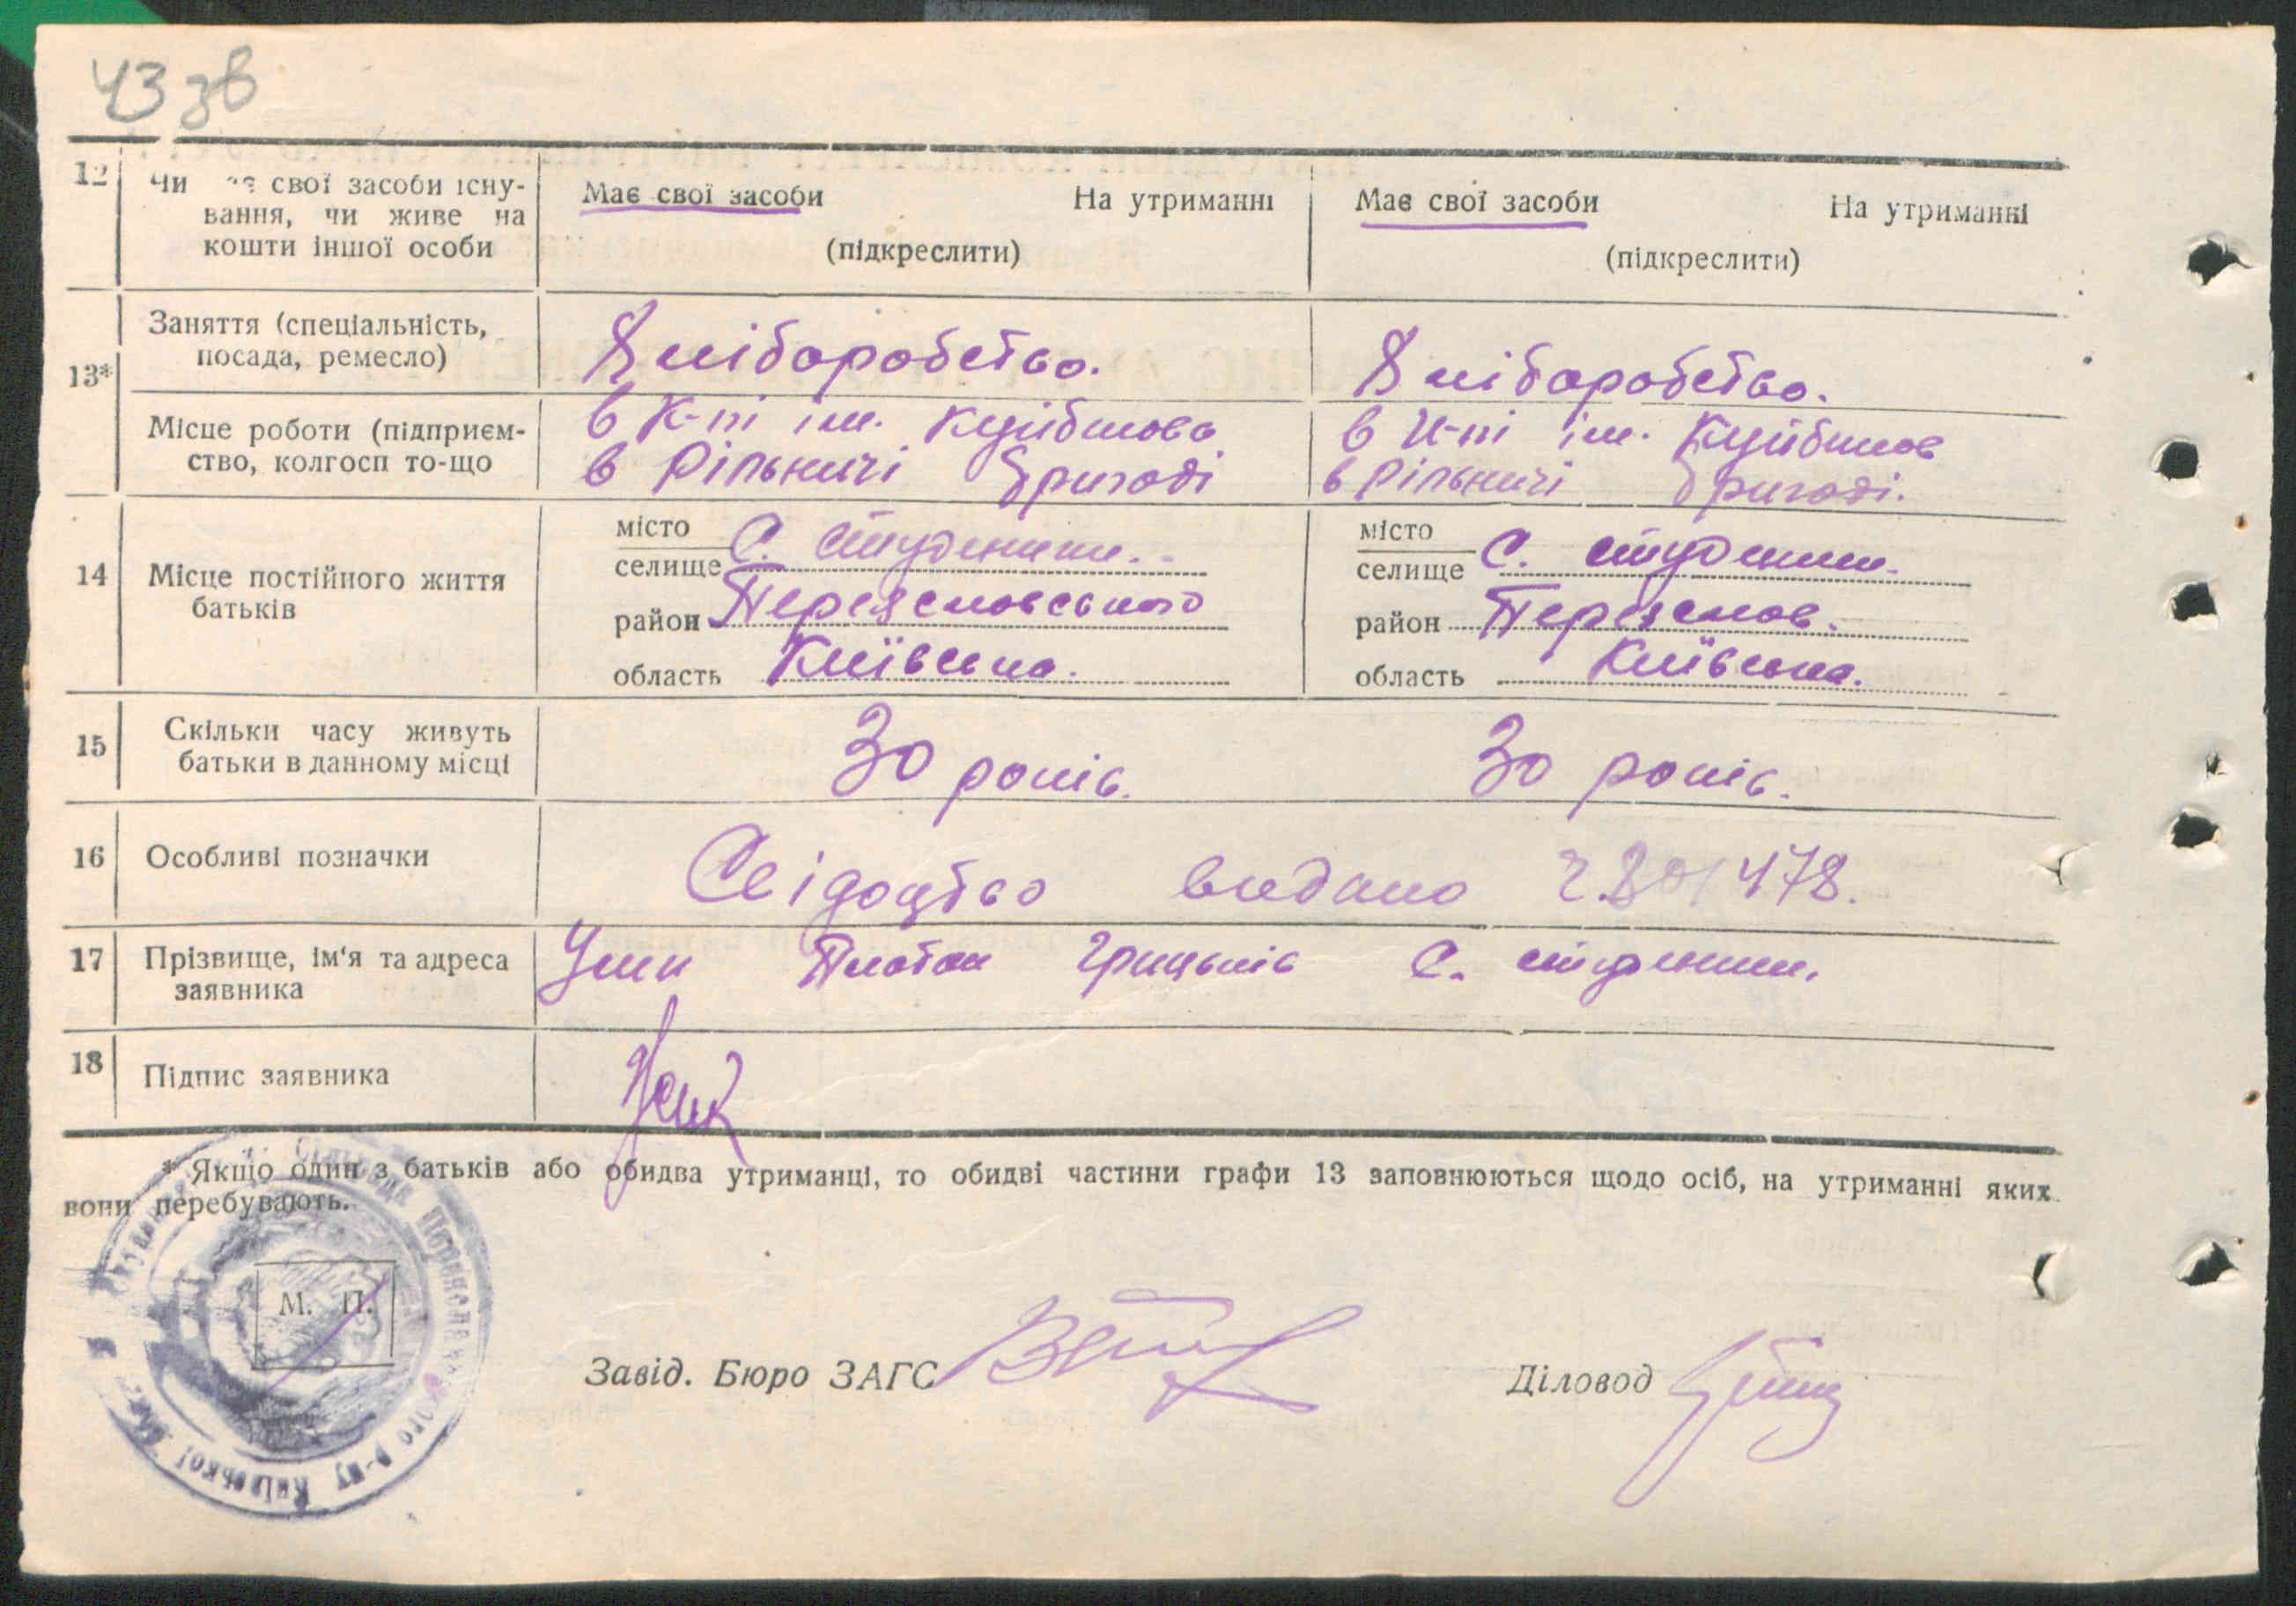 43 зв
12 Чи має свої засоби існу- Має свої засоби На утриманні Має свої засоби На утриманні
вання, чи живе на
кошти іншої особи (підкреслити) (підкреслити)
13* Заняття (спеціальність, Хліборобство. Хліборобство.
посада, ремесло)
Місце роботи (підприєм- в К-пі ім. Куйбишева в К-пі ім. Куйбишев
ство, колгосп то-що в рільничі бригаді в рільничі бригаді.
14 Місце постійного життя батьків
місто селище С. Студеники. місто селище С. Студеники.
район Переяславського район Переяслав.
область Київська. область Київська.
15 Скільки часу живуть 30 років. 30 років.
батьки в данному місці
16 Особливі позначки Свідоцтво видано 478.
17 Прізвище, ім'я та адреса Платон Грицьків С. Студеники.
заявника
18 Підпис заявника
* Якщо один з батьків або обидва утриманці, то обидві частини графи 13 заповнюються щодо осіб, на утриманні яких
вони перебувають.
М. П.
Завід. Бюро ЗАГС Діловод